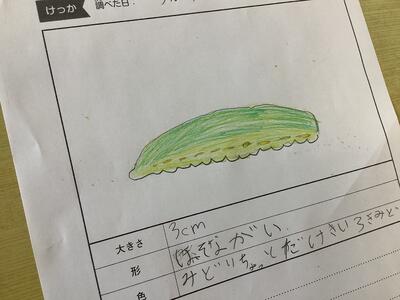 けっか
調べた日：
大きさ 3cm
形 ほそながい．
色 みどりちょっとだけきいろきみど